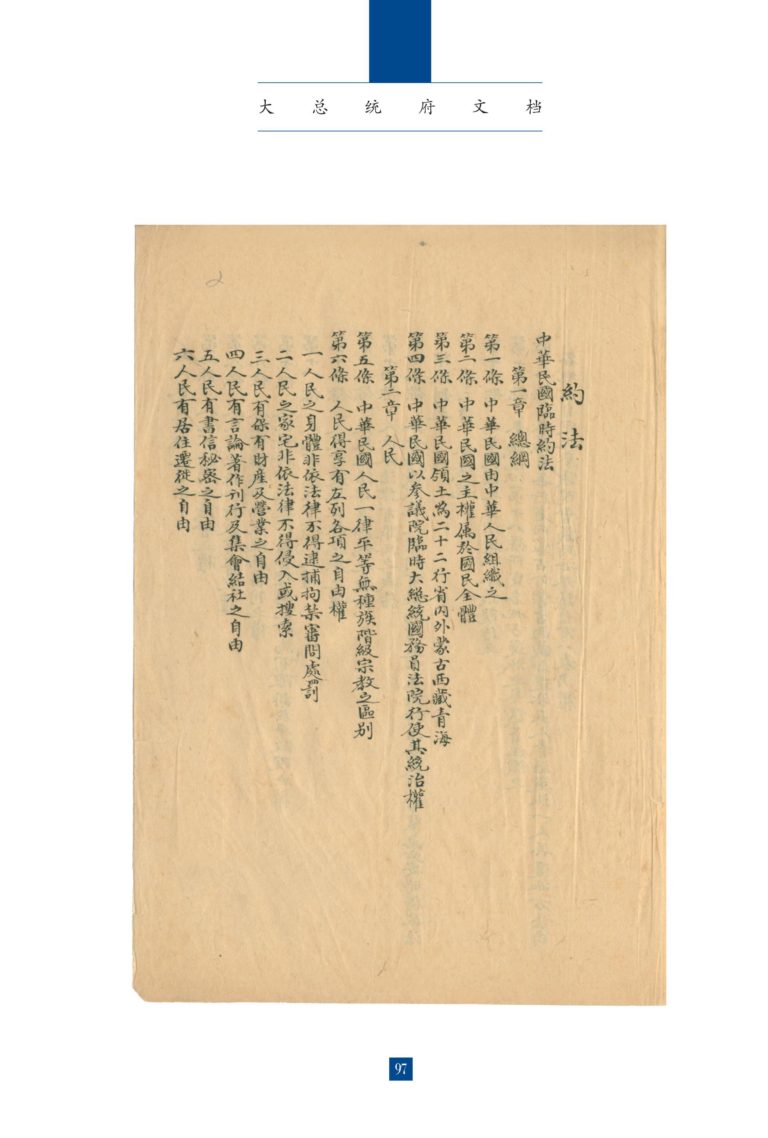 大总统府文档
約法
中華民國臨時約法
第一章 總綱
第一條 中華民國由中華人民組織之
第二條 中華民國之主權屬於國民全體
第三條 中華民國領土為二十二行省內外蒙古西藏青海
第四條 中華民國以參議院臨時大總統國務員法院行使其統治權
第二章 人民
第五條 中華民國人民一律平等無種族階級宗教之區別
第六條 人民得享有左列各項之自由權
一人民之身體非依法律不得逮捕拘禁審問處罰
二人民之家宅非依法律不得侵入或搜索
三人民有保有財產及營業之自由
四人民有言論著作刊行及集會結社之自由
五人民有書信秘密之自由
六人民有居住遷徙之自由
2
97